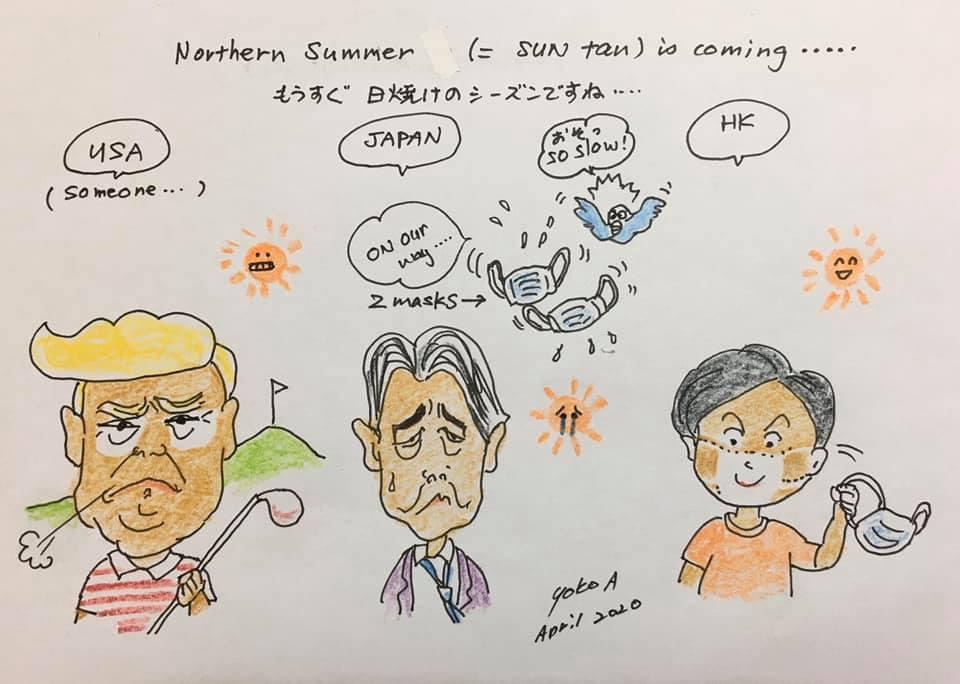 Northern Summer (= SUN tan) is coming .....
もうすぐ 日焼けのシーズンですね....
USA
(someone...)
JAPAN
おそっ
SO SLOW!
HK
ON OUR
way ....
2 masks →
yoko A
April 2020